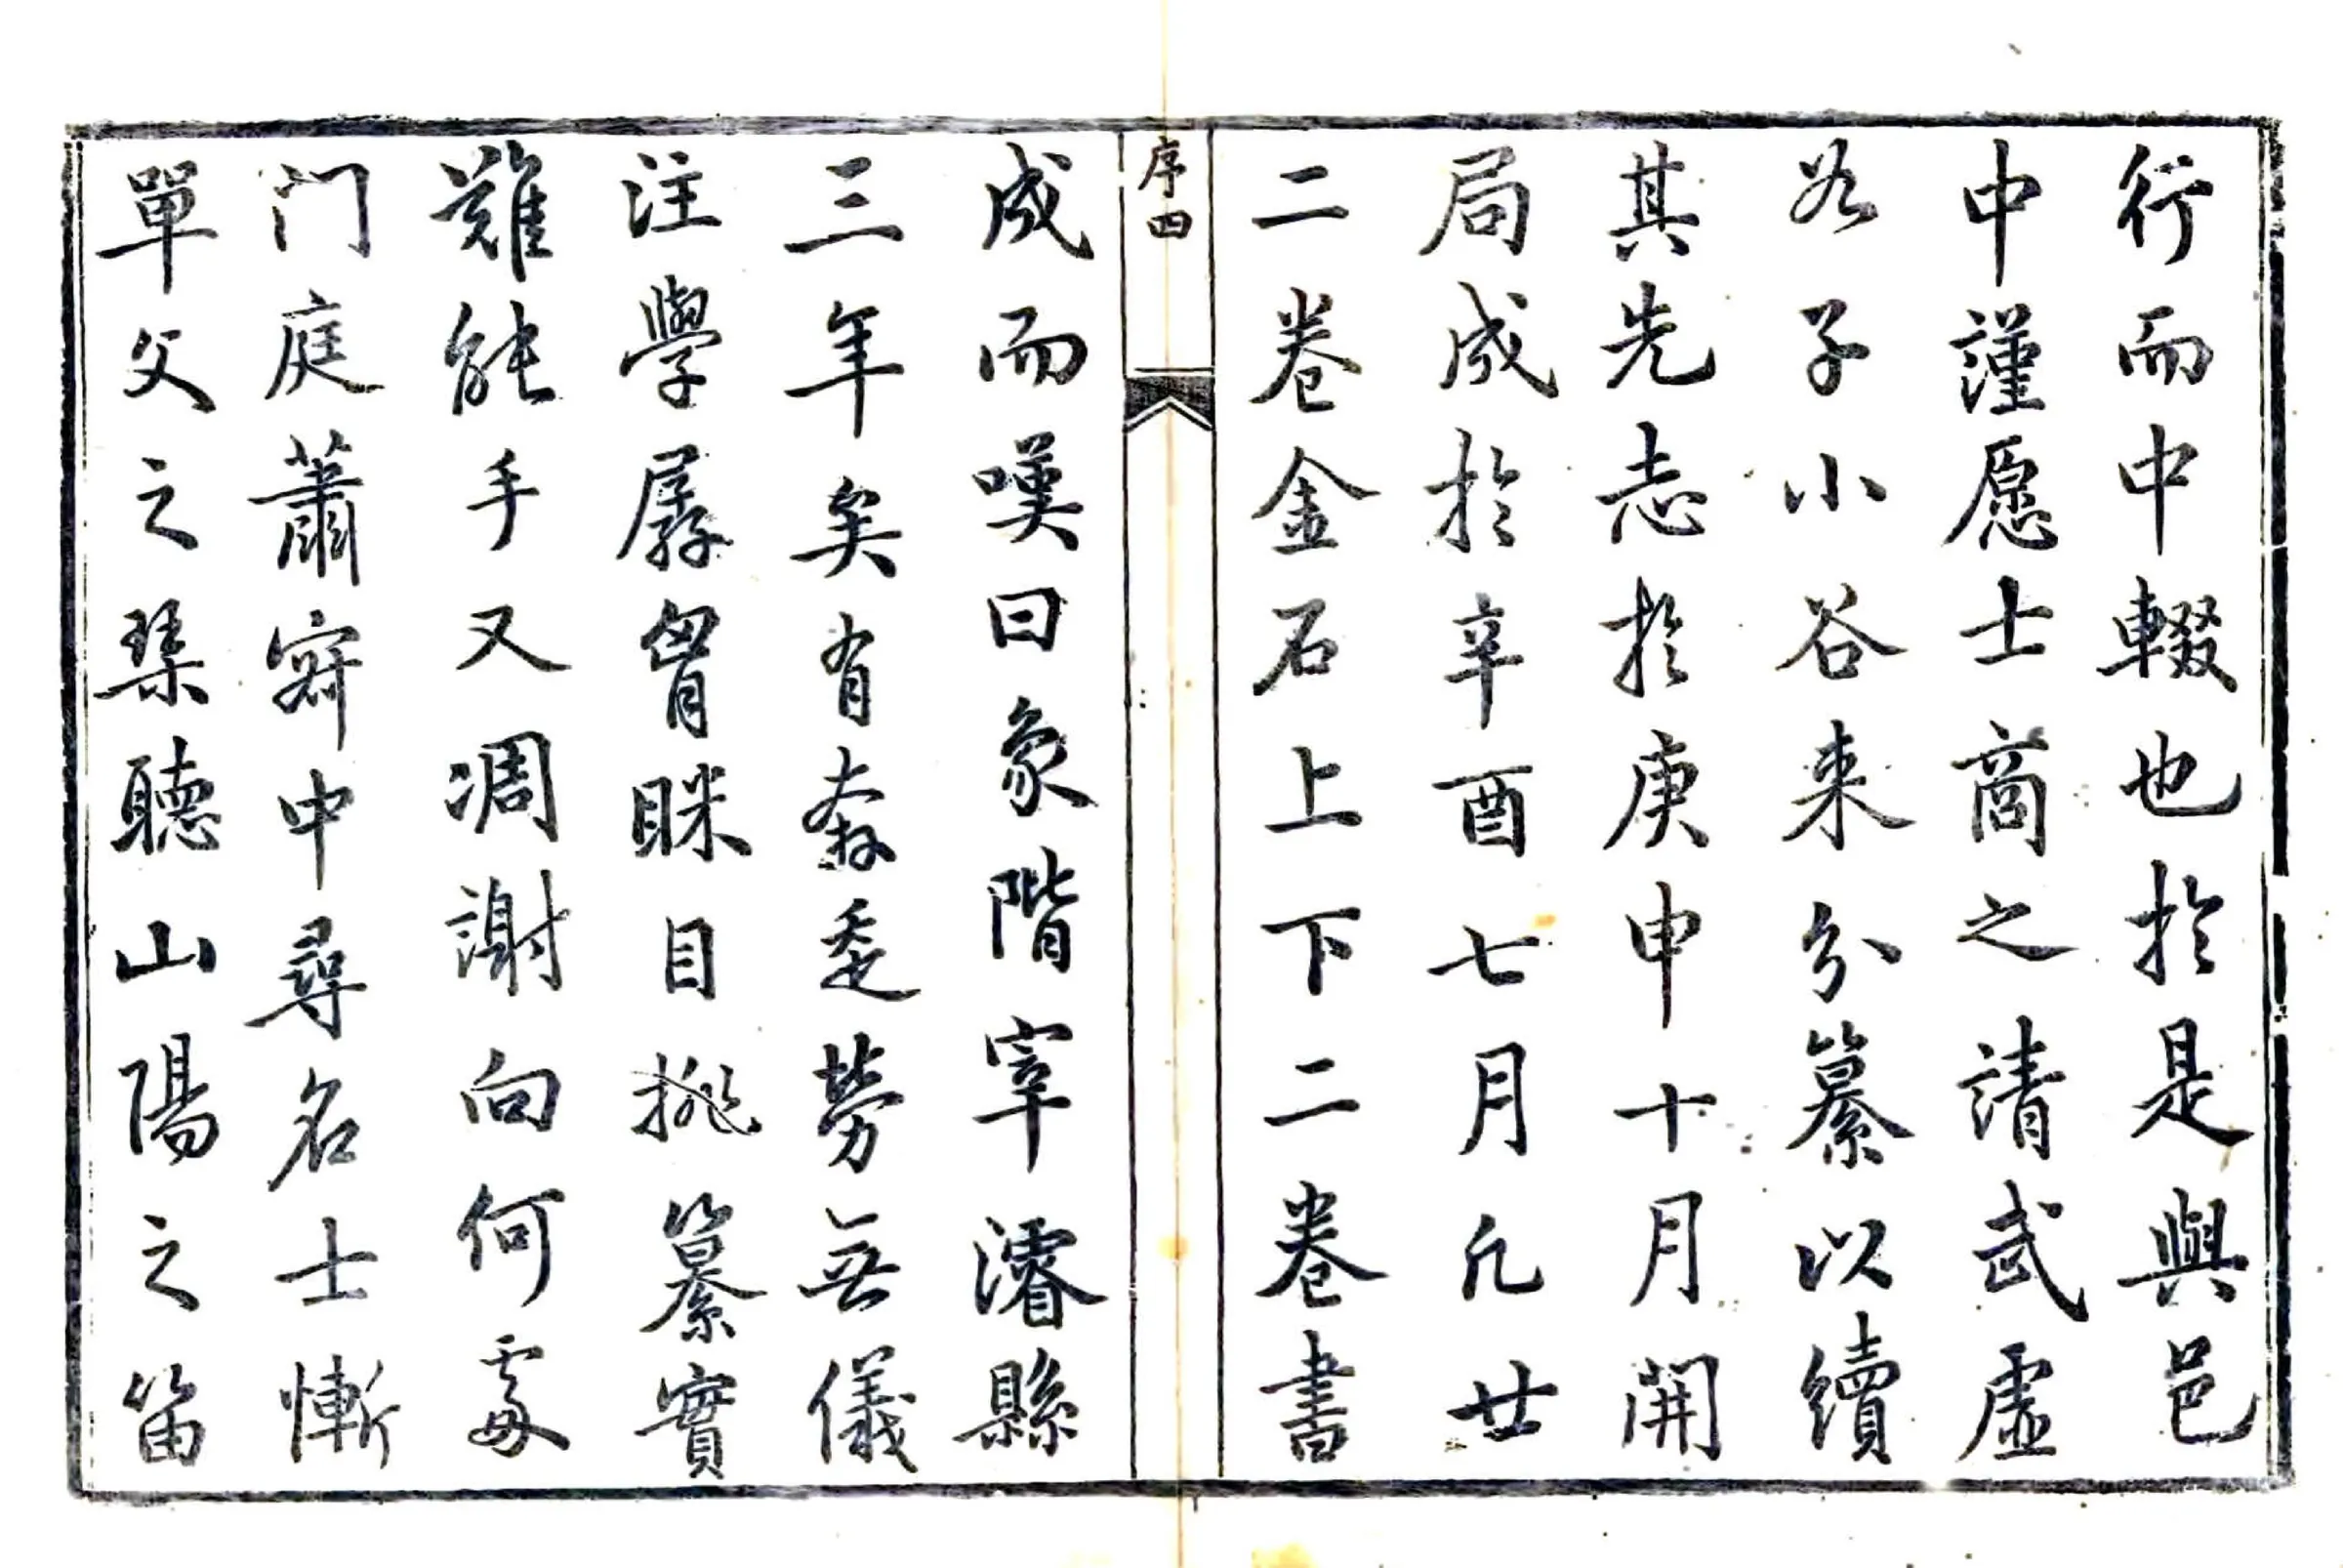 行而中輟也於是與邑
中謹愿士商之請武虛
谷子小谷来分纂以續
其先志於庚申十月開
局成於辛酉七月凡廿
二卷金石上下二卷書
序四
成而嘆曰象階宰濬縣
三年矣有忝委勞無儀
注學孱胷眯目挑纂實
難能手又凋謝向何處
门庭蕭寂中尋名士慚
單父之琴聽山陽之笛